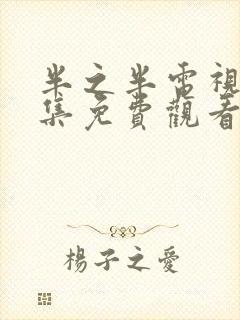 半之半電視
集免費觀看
楊子之愛